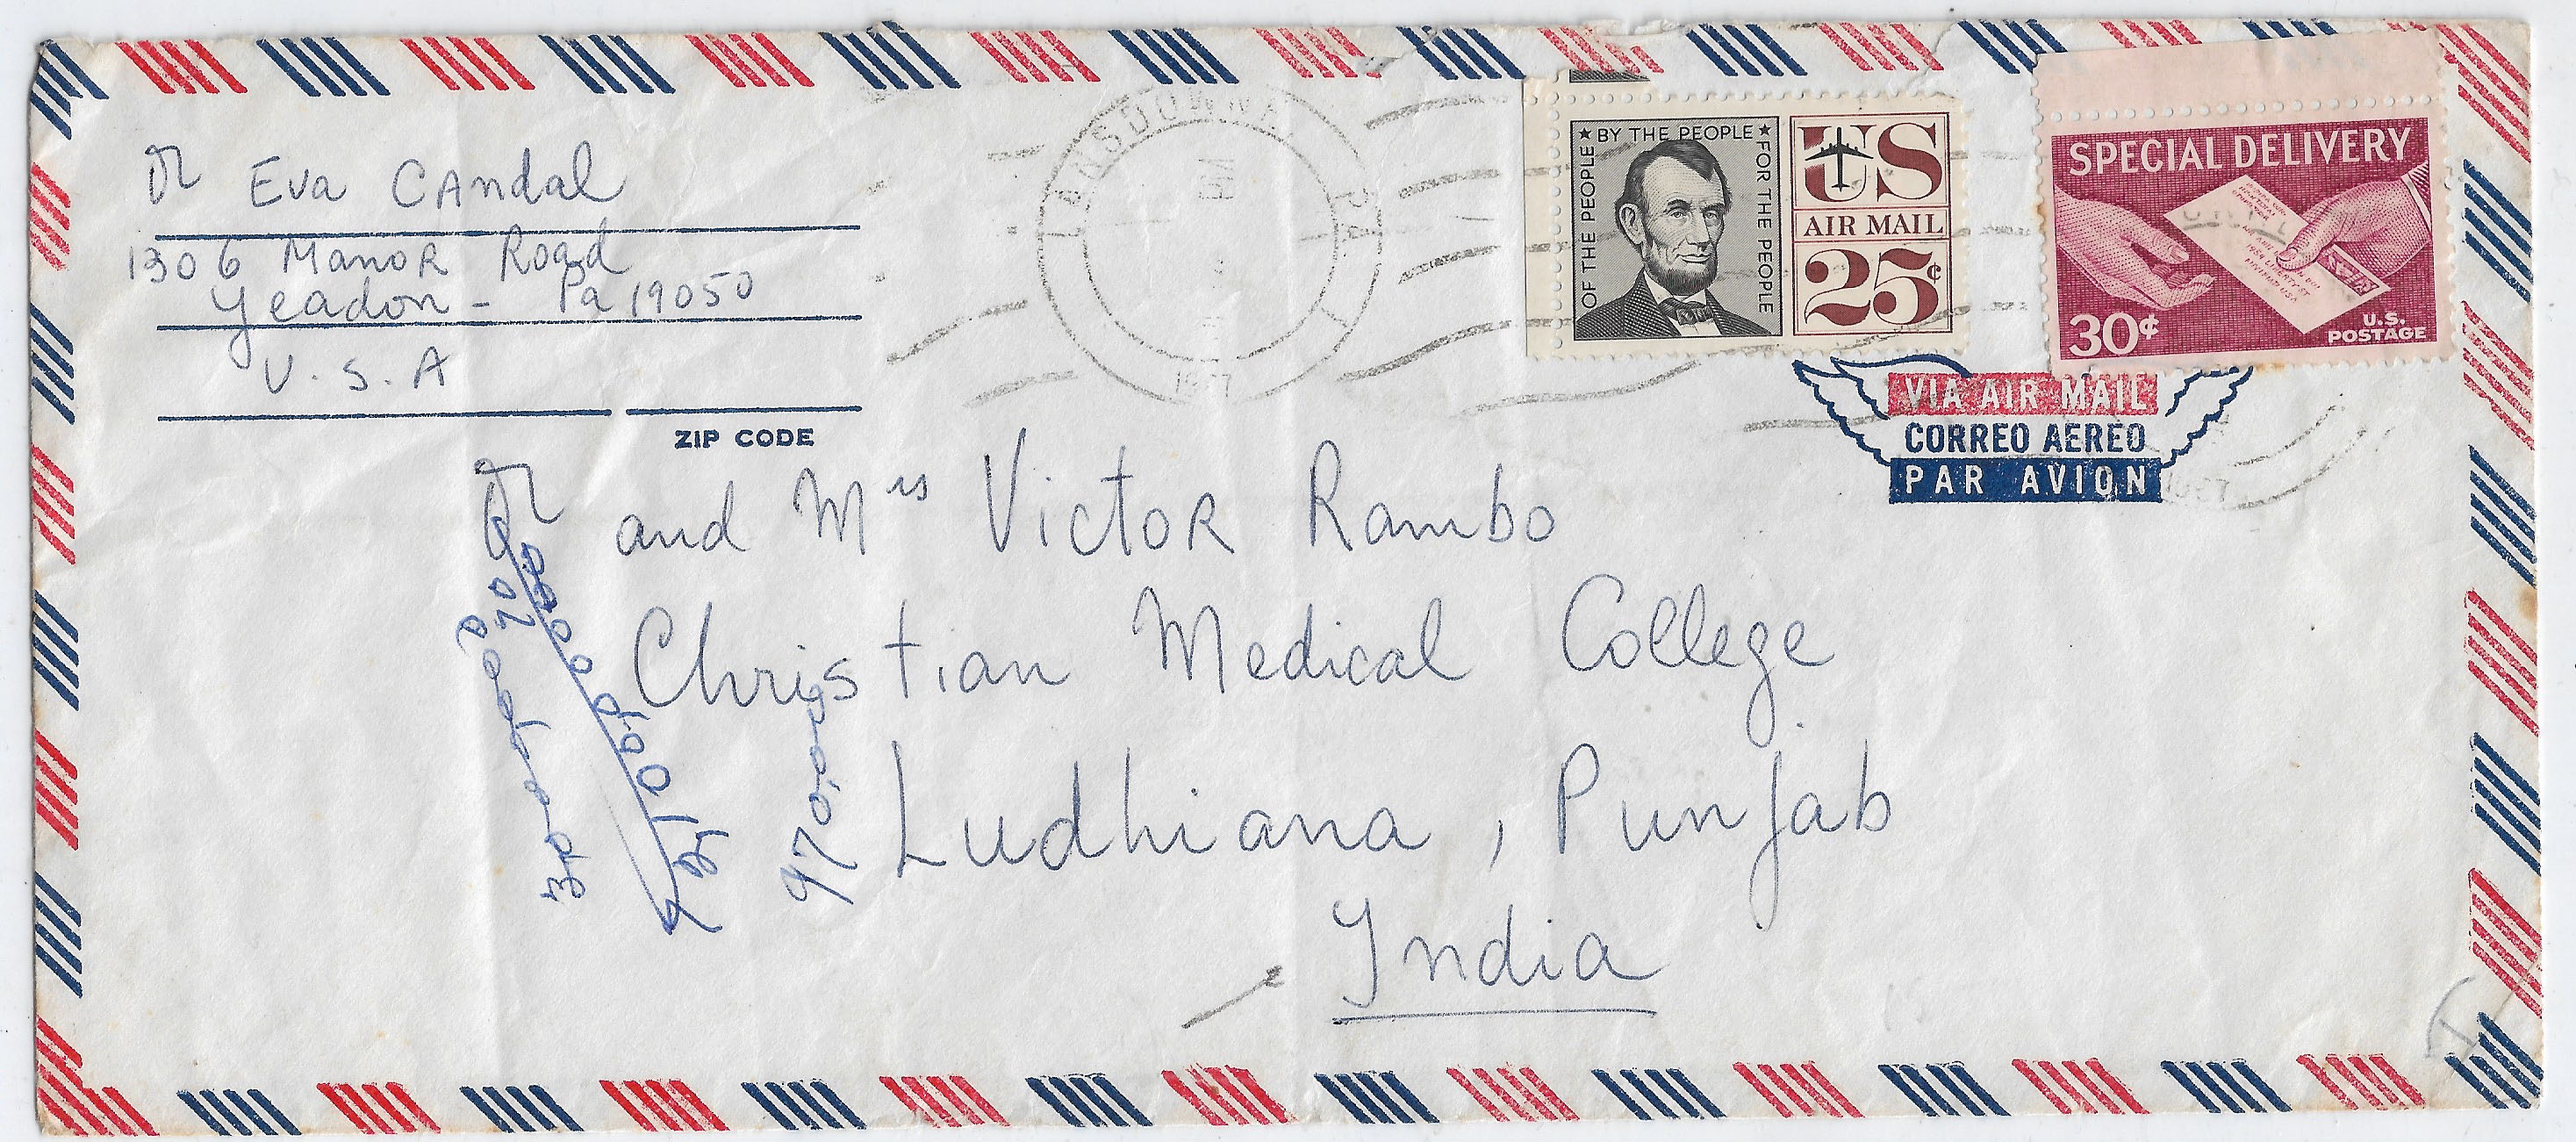 Dr Eva Candal
1306 Manor Road
Yeadon - Pa 19050
U.S.A
ZIP CODE
LANSDOWNE, PA.
PM
OF THE PEOPLE ★ BY THE PEOPLE ★ FOR THE PEOPLE
US
AIR MAIL
25¢
SPECIAL DELIVERY
30¢
U.S. POSTAGE
VIA AIR MAIL
CORREO AEREO
PAR AVION
Dr and Mrs Victor Rambo
Christian Medical College
Ludhiana, Punjab
India